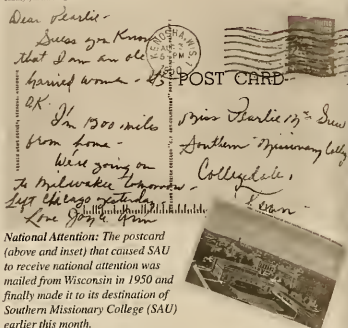 Dear Pearlie -
Guess you know
that I am an ole
married woman -
O.K.
I'm 1300 miles
from home -
We're going on
to Milwakee tomorrow -
Left Chicago yesterday
Love
KENOSHA, WIS.
5 PM
POST CARD
Miss Pearlie Mc
Southern Missionary College
Collegedale,
Tenn -
National Attention: The postcard
(above and inset) that caused SAU
to receive national attention was
mailed from Wisconsin in 1950 and
finally made it to its destination of
Southern Missionary College (SAU)
earlier this month.